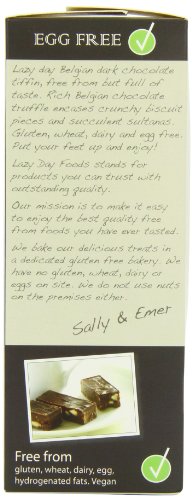 EGG FREE
Lazy day Belgian dark chocolate
tiffin, free from but full of
taste. Rich Belgian chocolate
truffle encases crunchy biscuit
pieces and succulent sultanas.
Gluten, wheat, dairy and egg free.
Put your feet up and enjoy!
Lazy Day Foods stands for
products you can trust with
outstanding quality.
Our mission is to make it easy
to enjoy the best quality free
from foods you have ever tasted.
We bake our delicious treats in
a dedicated gluten free bakery. We
have no gluten, wheat, dairy or
eggs on site. We do not use nuts
on the premises either.
Sally & Emer
Free from
gluten, wheat, dairy, egg,
hydrogenated fats. Vegan